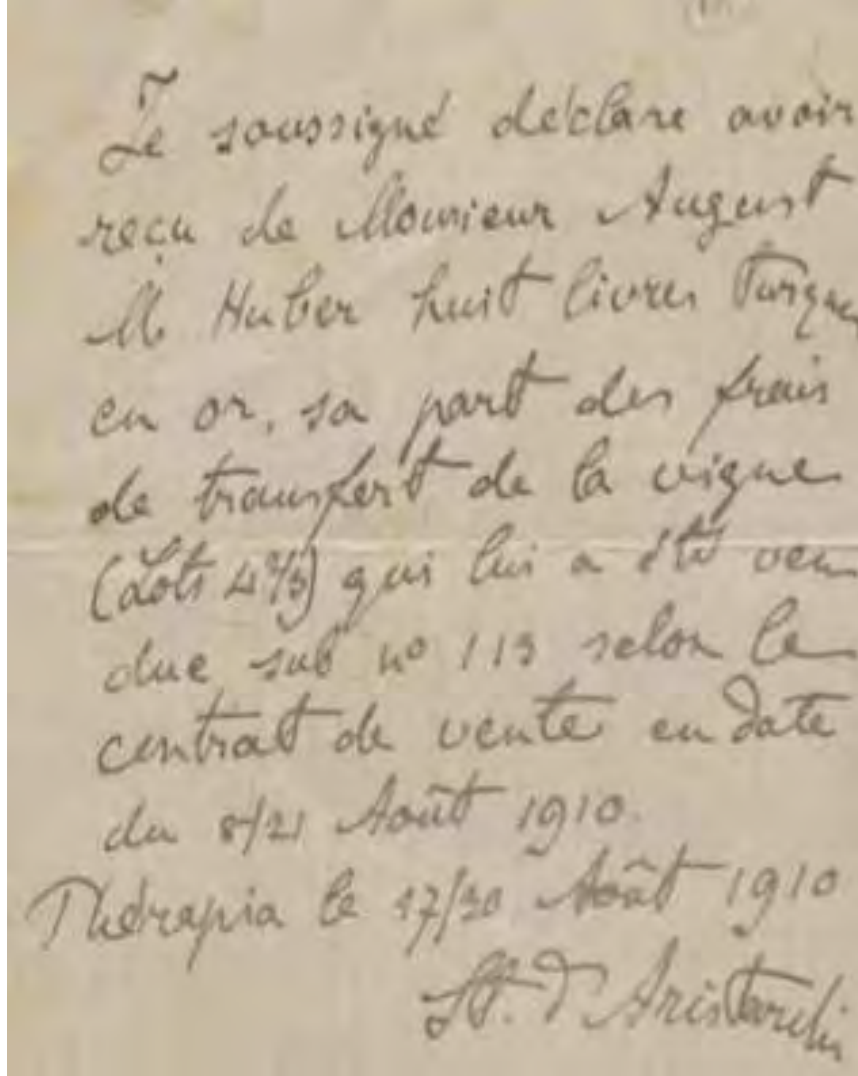 Je soussigné déclare avoir
reçu de Monsieur August
M Huber huit livres Turques
en or, sa part des frais
de transfert de la vigne
(Lots 4⅔) qui lui a été ven
due sub nº 113 selon le
contrat de vente en date
du 8/21 Août 1910.
Thérapia le 17/30 Août 1910
St. D Aristarchi